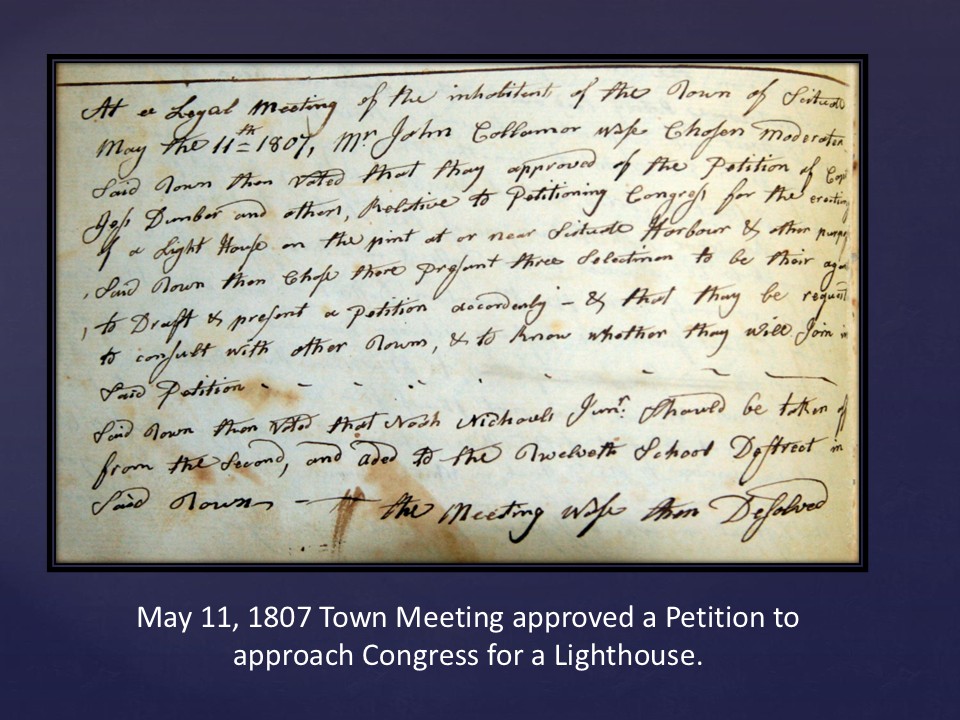 At a Legal Meeting of the inhabitents of the Town of Situate
May the 11th 1807, Mr John Collamor wase Chosen Moderator
Said Town then Voted that thay approved of the Petition of Capt
Jess Dunbar and others, Relative to Petitioning Congress for the erecting
of a Light House on the pint at or near Situate Harbour & other
Said Town then Chose there present three Selectmen to be their
to Draft & present a Petition accordenly – & that thay be
to consult with other Towns, & to know whether thay will Join in
Said Petition - - - - - - - -
Said Town then Voted that Noah Nichouls Junr. Should be taken of
from the Second, and aded to the Twelveth School Destrect in
Said Town – the Meeting wase then Desolved
May 11, 1807 Town Meeting approved a Petition to
approach Congress for a Lighthouse.